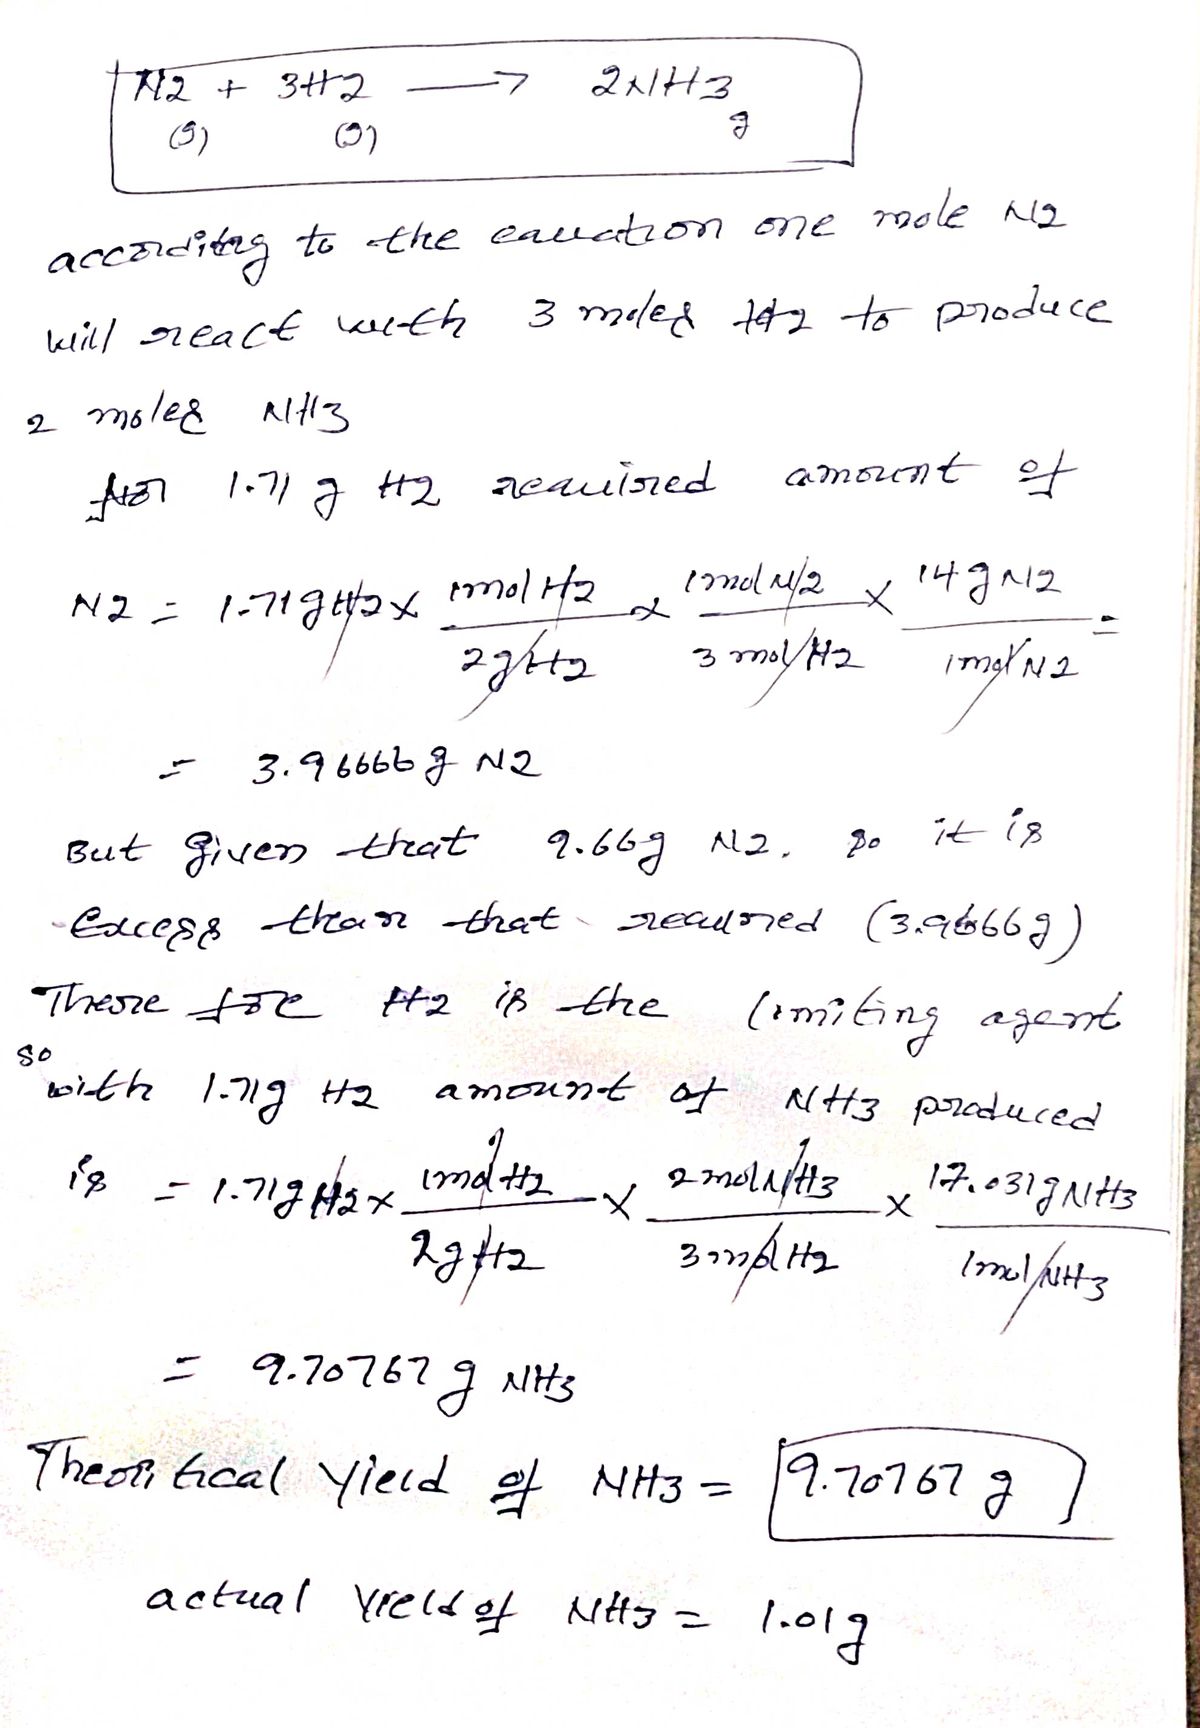 N2 + 3H2 → 2NH3
(g) (g) g
accorditng to the equation one mole N2
will react with 3 moles H2 to produce
2 moles NH3
for 1.71 g H2 required amount of
N2 = 1.71gH2 x 1mol H2 / 2gH2 x 1mol N2 / 3 mol H2 x 14 g N2 / 1mol N2 =
= 3.96666 g N2
But given that 9.66g N2. so it is
Excess than that required (3.9666g)
There fore H2 is the limiting agent
so with 1.71g H2 amount of NH3 produced
is = 1.71g H2 x 1mol H2 / 2g H2 x 2 mol NH3 / 3 mol H2 x 17.031g NH3 / 1mol NH3
= 9.70767 g NH3
Theoritical Yield of NH3 = 9.70767 g
actual Yield of NH3 = 1.01g